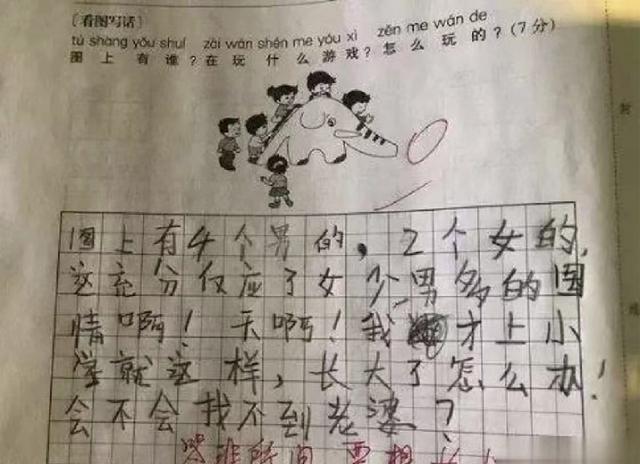 [看图写话]
tú shàng yǒu shuí zài wán shén me yóu xì zěn me wán de
图上有谁？在玩什么游戏？怎么玩的？(7分)
图上有4个男的，2个女的，
这充分仅应了女少男多的国
情啊！天啊！我才上小
学就这样，长大了怎么办！
会不会找不到老婆？
答非所问